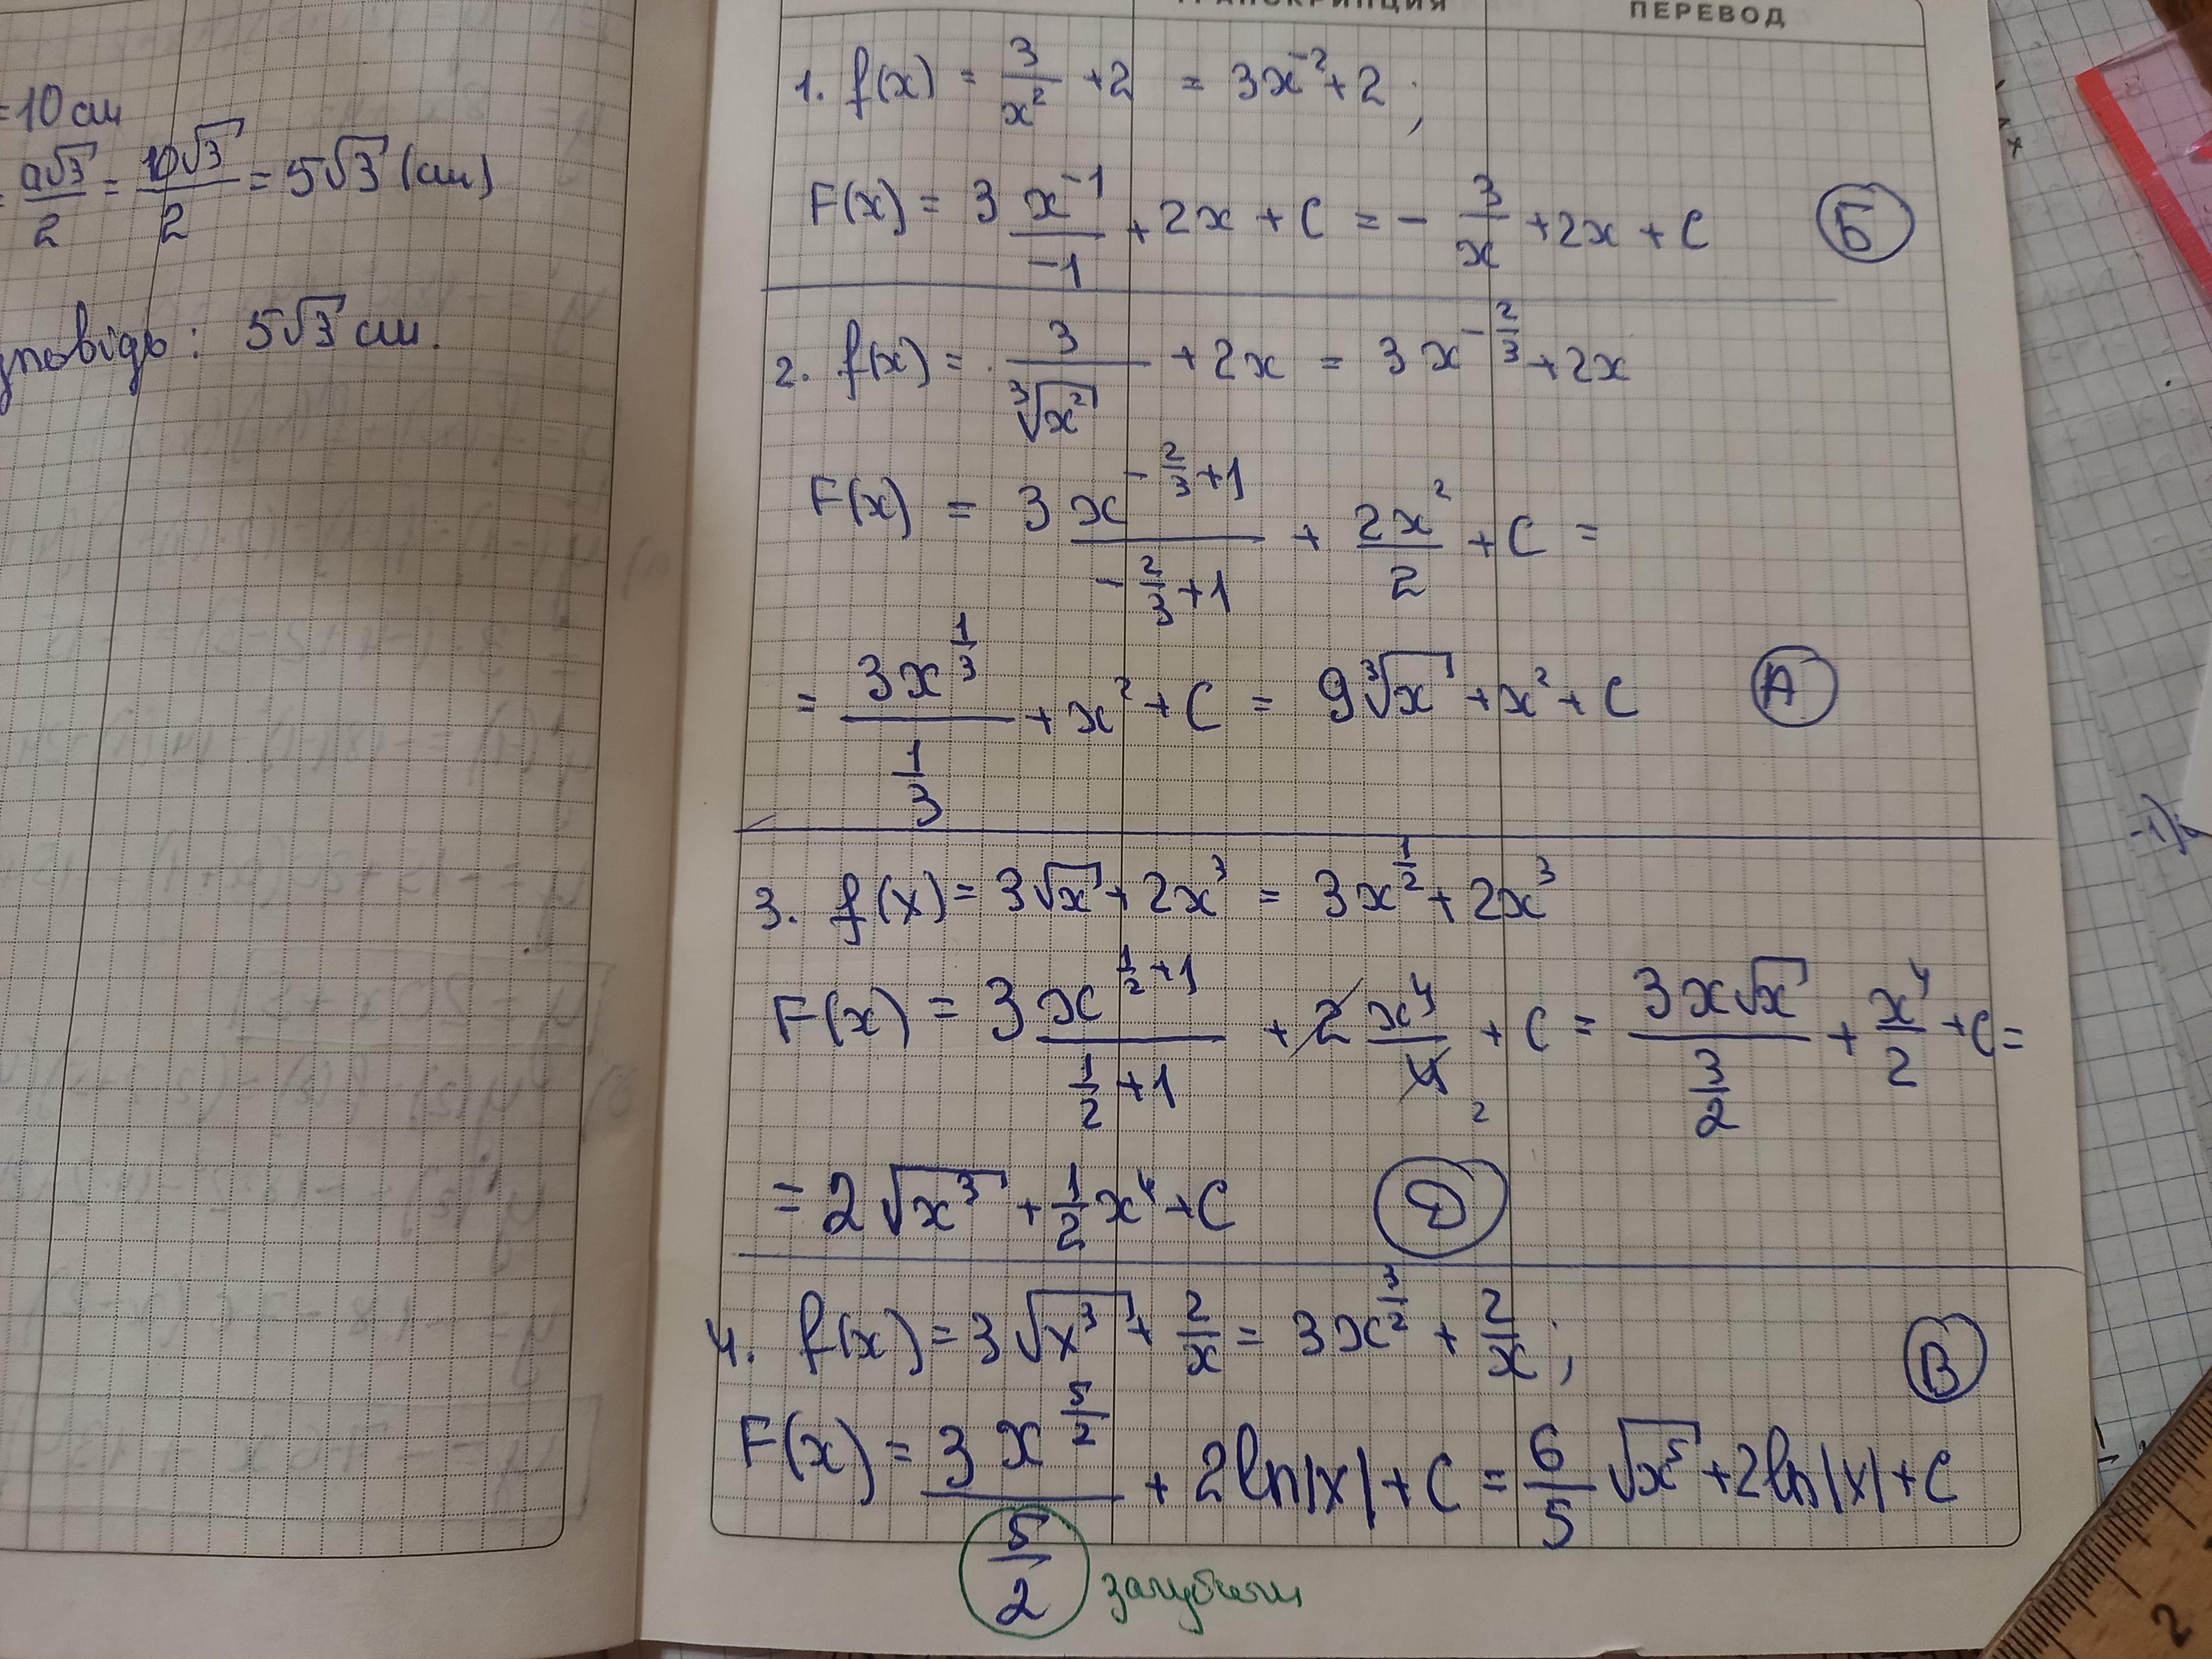 =10 см
= a√3/2 = 10√3/2 = 5√3 (см)
5√3 см.
ПЕРЕВОД
1. f(x) = 3/x² + 2 = 3x⁻² + 2 ;
F(x) = 3 x⁻¹/-1 + 2x + C = - 3/x + 2x + C Б
2. f(x) = 3/∛x² + 2x = 3x^(-2/3) + 2x
F(x) = 3 x^(-2/3+1)/(-2/3+1) + 2x²/2 + C =
= 3x^(1/3)/(1/3) + x² + C = 9∛x + x² + C А
3. f(x) = 3√x + 2x³ = 3x^(1/2) + 2x³
F(x) = 3 x^(1/2+1)/(1/2+1) + 2 x⁴/4 2 + C = 3x√x/(3/2) + x⁴/2 + C =
= 2√x³ + 1/2 x⁴ + C Д
4. f(x) = 3√x³ + 2/x = 3x^(3/2) + 2/x ; В
F(x) = 3x^(5/2)/(5/2) + 2ln|x| + C = 6/5 √x⁵ + 2ln|x| + C
загубили
2